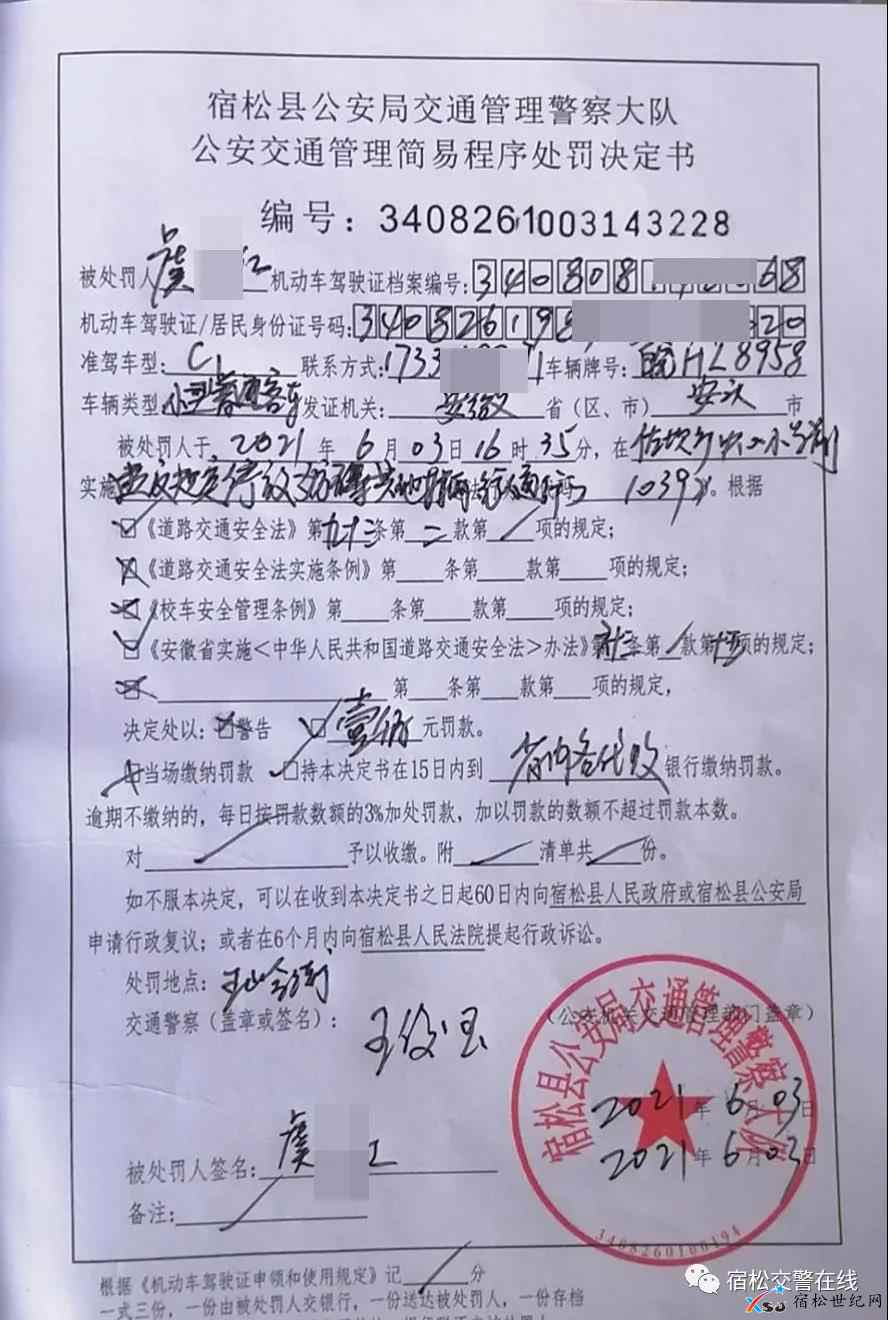 宿松县公安局交通管理警察大队
公安交通管理简易程序处罚决定书
编号：3408261003143228
被处罚人 虞 红 机动车驾驶证档案编号：340808 68
机动车驾驶证/居民身份证号码：340826198 20
准驾车型：C1 联系方式：1733 1 车辆牌号：皖HL8958
车辆类型 小型普通客车 发证机关：安徽 省（区、市）安庆 市
被处罚人于 2021 年 6 月 03 日 16 时 35 分，在 佐坝乡 小学门
实施 违反规定停放 妨碍其他车辆行人通行 1039 》。根据
☑《道路交通安全法》第九十三条第二款第／项的规定；
☒《道路交通安全法实施条例》第 条第 款第 项的规定；
☒《校车安全管理条例》第 条第 款第 项的规定；
☑《安徽省实施<中华人民共和国道路交通安全法>办法》第 条第／款第 项的规定；
☒ 第 条第 款第 项的规定，
决定处以：☒警告 ☑ 壹佰 元罚款。
☒当场缴纳罚款 ☑持本决定书在15日内到 省内各代收 银行缴纳罚款。
逾期不缴纳的，每日按罚款数额的3%加处罚款，加以罚款的数额不超过罚款本数。
对 ／ 予以收缴。附 ／ 清单共 ／ 份。
如不服本决定，可以在收到本决定书之日起60日内向宿松县人民政府或宿松县公安局
申请行政复议；或者在6个月内向宿松县人民法院提起行政诉讼。
处罚地点：
交通警察（盖章或签名）： 王俊玉 （公安机关交通管理部门盖章）
宿松县公安局交通管理警察大队
2021年6月03日
2021年6月03日
被处罚人签名： 虞 红
备注：／
3408260100194
根据《机动车驾驶证申领和使用规定》记 ／ 分
一式三份，一份由被处罚人交银行，一份送达被处罚人，一份存档
宿松交警在线
XSJ 宿松世纪网